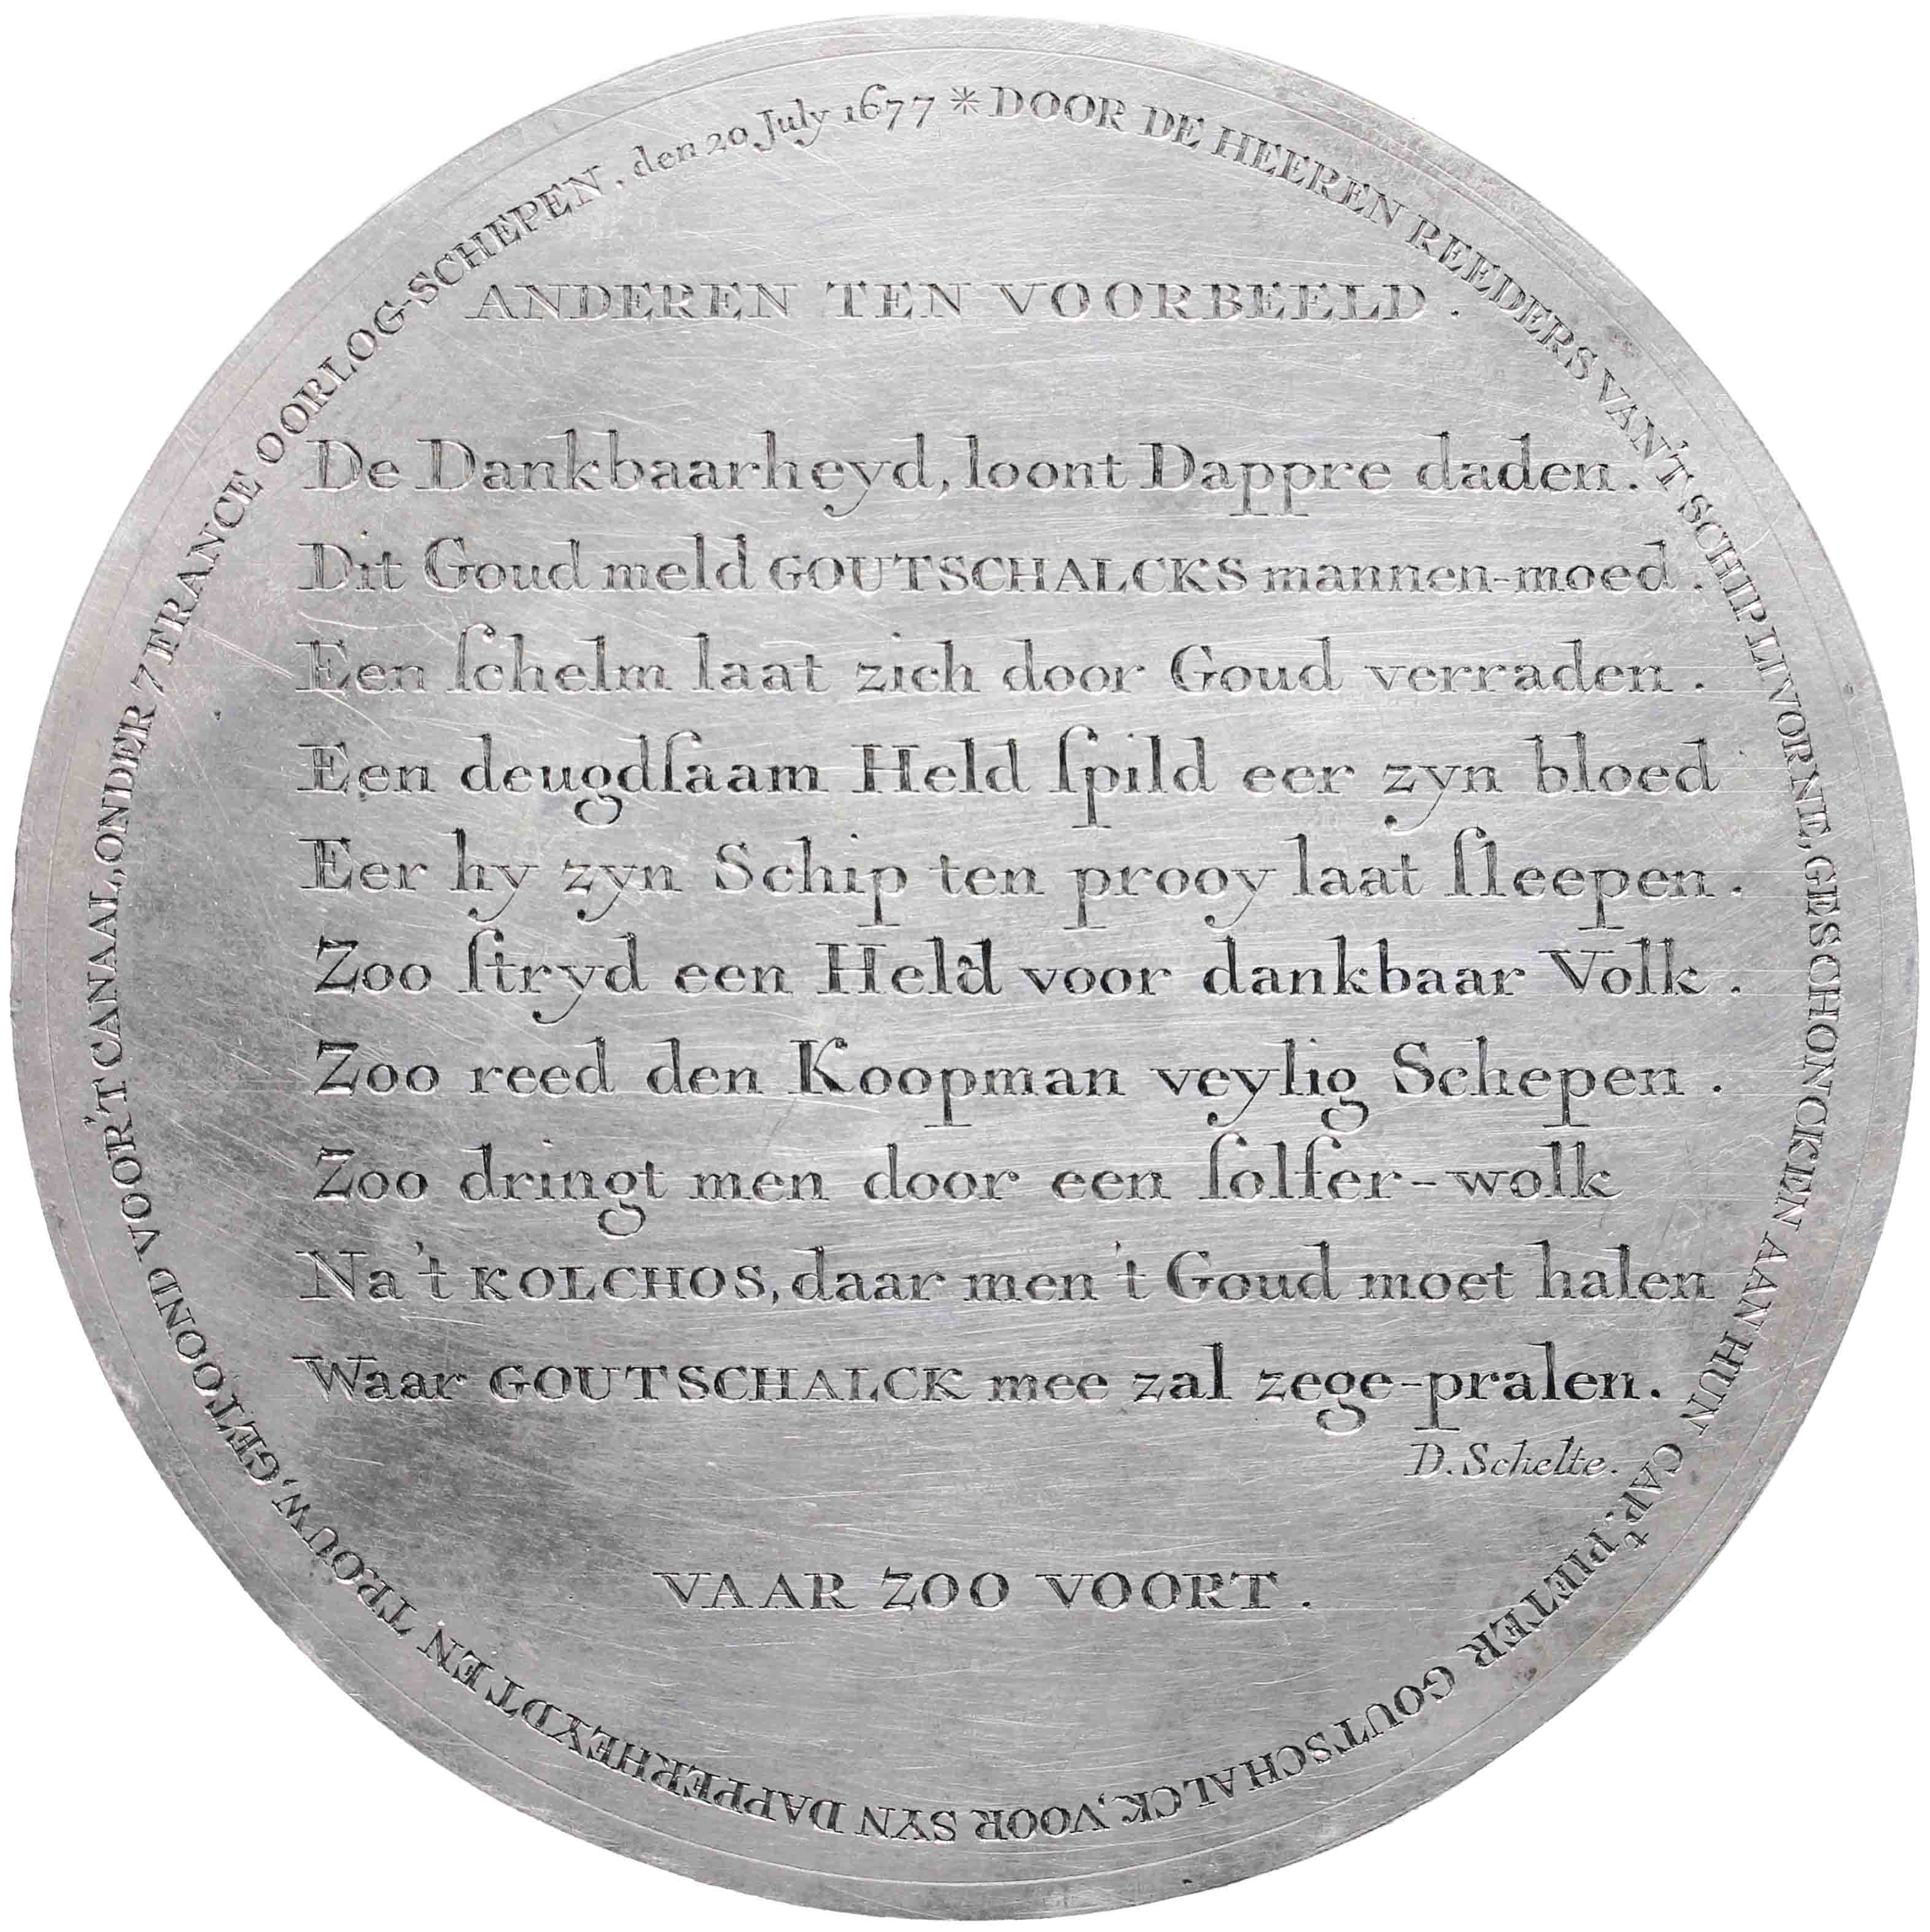 DOOR DE HEEREN REEDERS VAN'T SCHIP LIVORNE, GESCHONCKEN AAN HUN CAP.t PIETER GOUTSCHALCK, VOOR SYN DAPPERHEYDT EN TROUW, GETOOND VOOR'T CANAAL, ONDER 7 FRANCE OORLOG-SCHEPEN. den 20 July 1677 *
ANDEREN TEN VOORBEELD.
De Dankbaarheyd, loont Dappre daden.
Dit Goud meld GOUTSCHALCKS mannen-moed.
Een ſchelm laat zich door Goud verraden.
Een deugdſaam Held ſpild eer zyn bloed
Eer hy zyn Schip ten prooy laat ſleepen.
Zoo ſtryd een Held voor dankbaar Volk.
Zoo reed den Koopman veylig Schepen.
Zoo dringt men door een ſolfer-wolk
Na't KOLCHOS, daar men 't Goud moet halen
Waar GOUTSCHALCK mee zal zege-pralen.
D. Schelte.
VAAR ZOO VOORT.